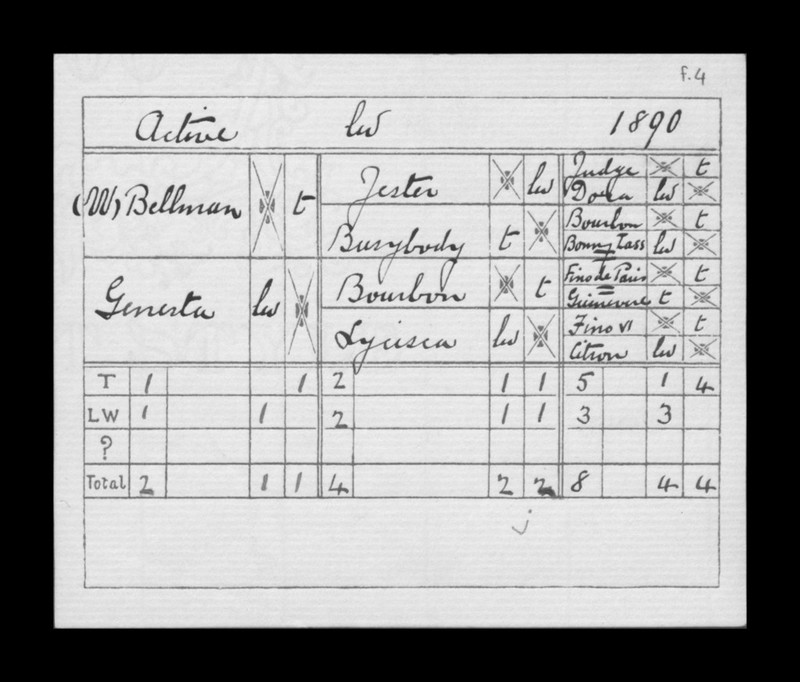 f.4
Active lw 1890
(W) Bellman t
Genesta lw
Jester lw
Busybody t
Bourbon t
Lycisca lw
Judge t
Dora lw
Bourbon t
Bonny Lass lw
Fino de Paris t
Guinevere t
Fino VI t
Citron lw
T 1 1 2 1 1 5 1 4
LW 1 1 2 1 1 3 3
?
Total 2 1 1 4 2 2 8 4 4
j